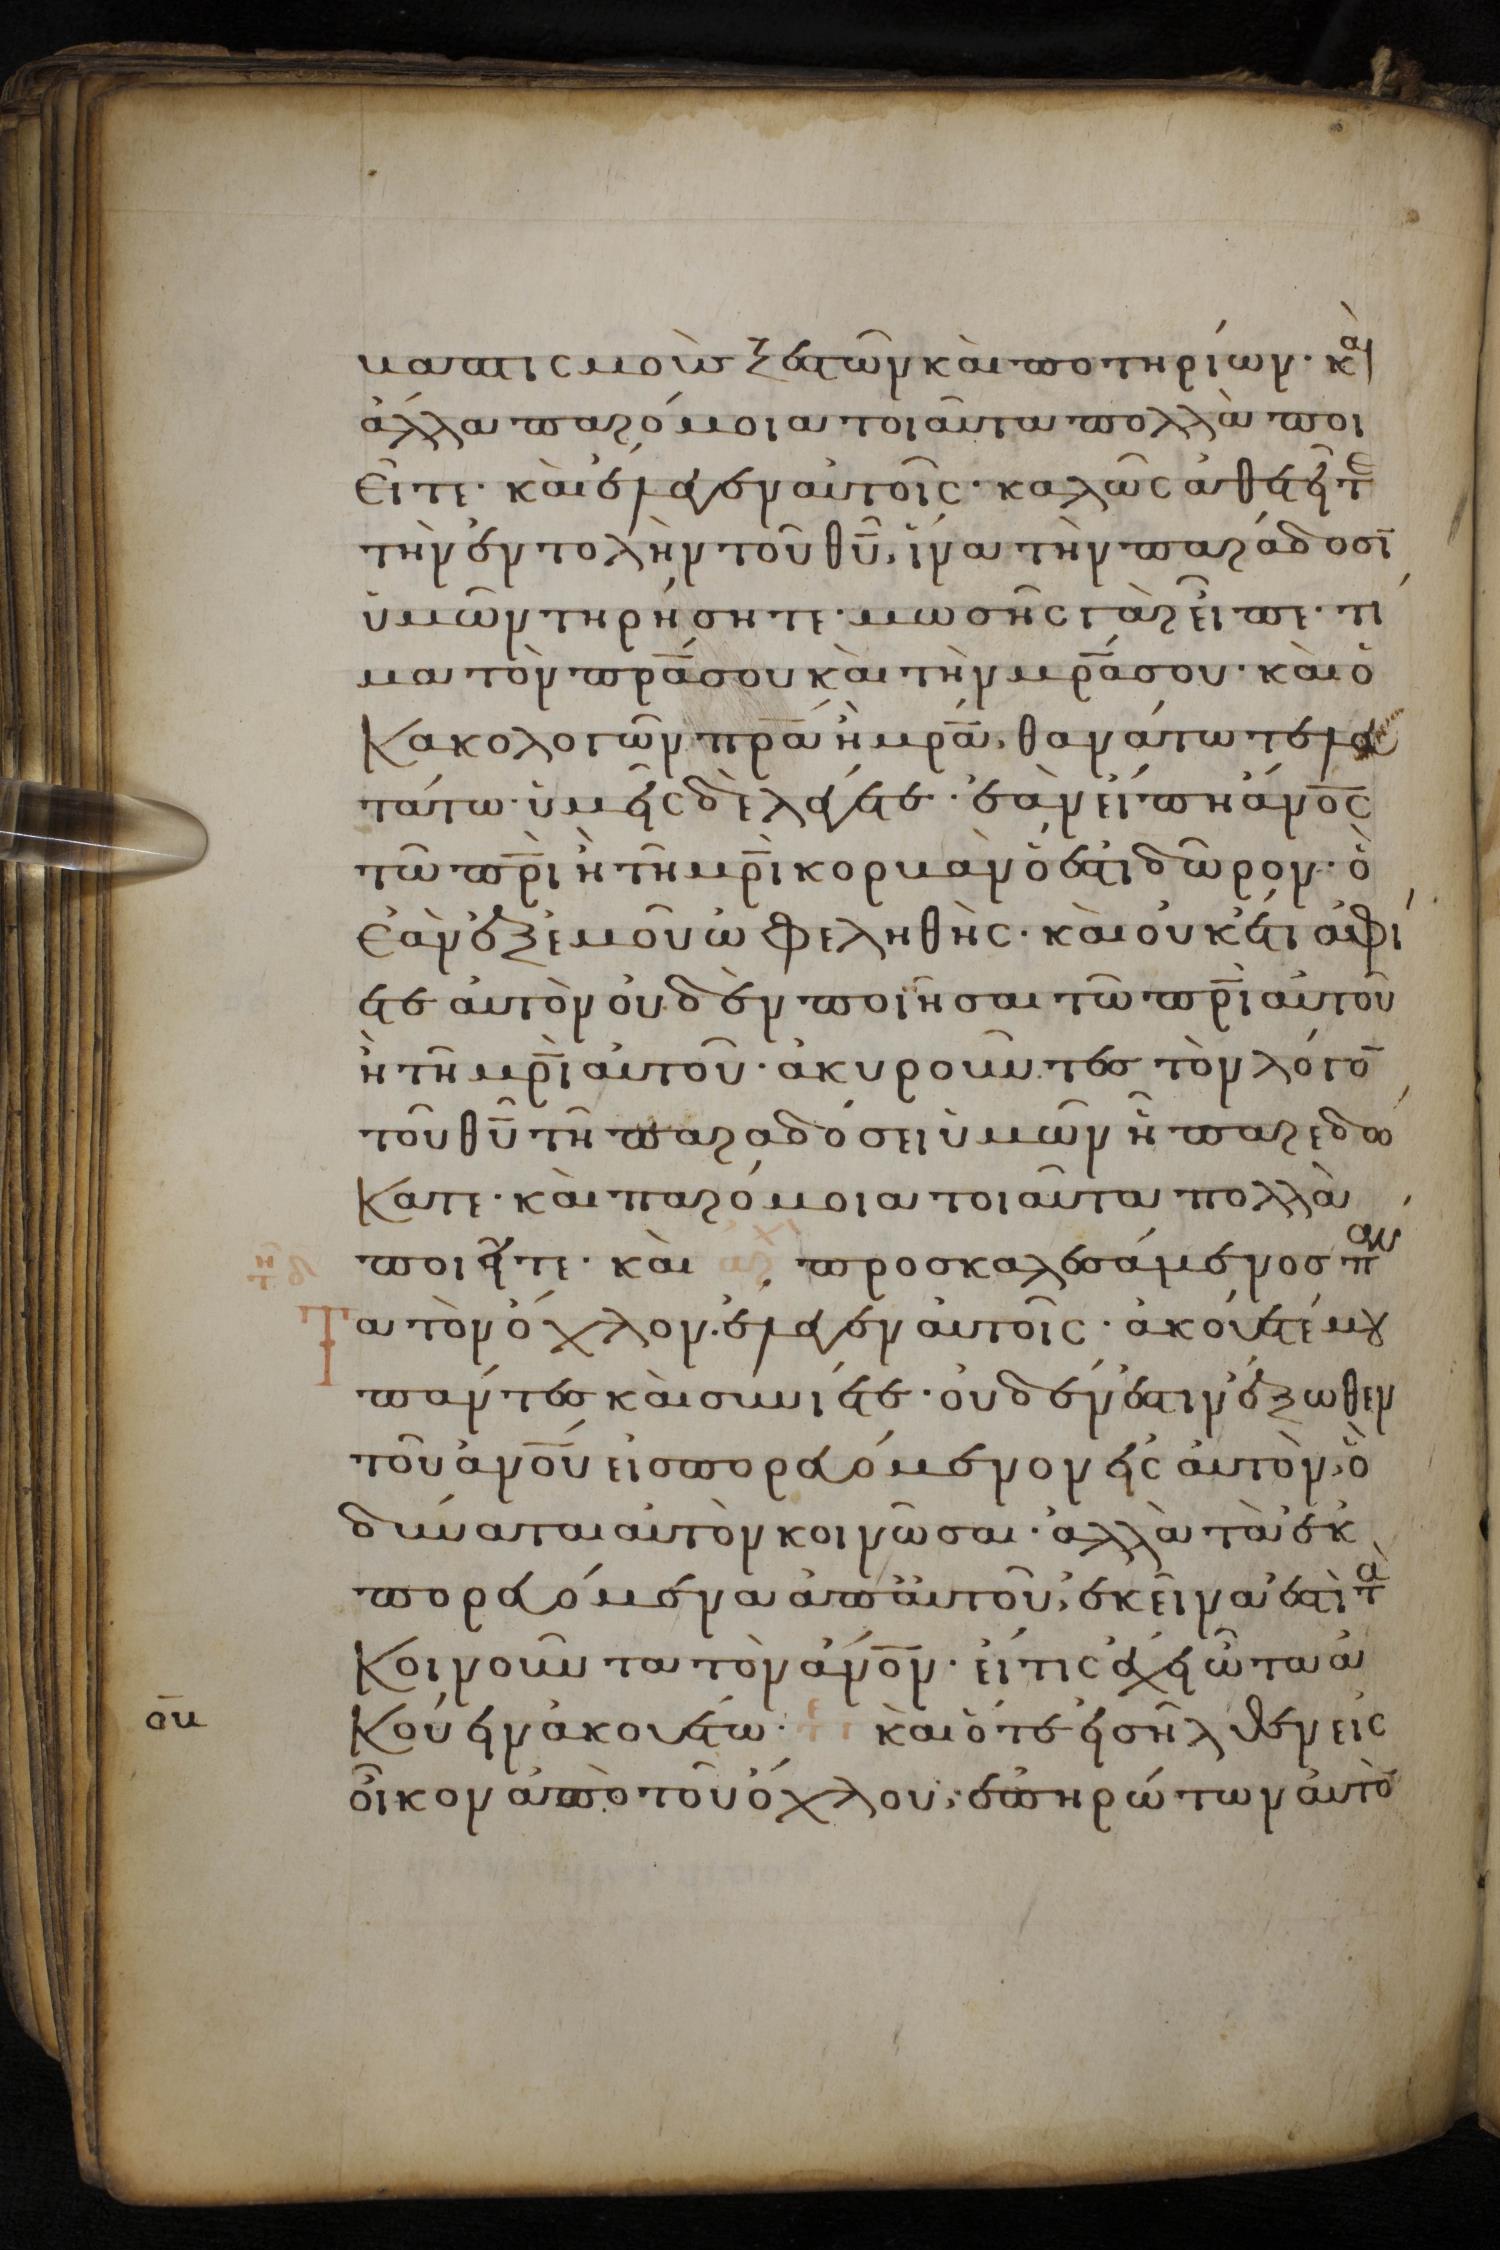 βαπτισμοὺς ξεστῶν καὶ ποτηρίων· καὶ
ἄλλα παρόμοια τοιαῦτα πολλὰ ποι
εῖτε· καὶ ἔλεγεν αὐτοῖς· καλῶς ἀθετεῖτε
τὴν ἐντολὴν τοῦ θῡ, ἵνα τὴν παράδοσῑ
ὑμῶν τηρήσητε· μωσῆς γὰρ εἶπε· τί
μα τὸν πρ̄α σου καὶ τὴν μρ̄α σου· καὶ ὁ
κακολογῶν πρ̄α ἢ μρ̄α, θανάτω τελευ
τάτω· ὑμεῖς δὲ λέγετε· ἐὰν εἴπη ἄν̄ος
τῶ πρ̄ι ἢ τῆ μρ̄ι κορβὰν ὅ ἐστι δῶρον· ὃ
ἐὰν ἐξ ἐμοῦ ὠφεληθῆς· καὶ οὐκέτι ἀφί
ετε αὐτὸν οὐδὲν ποιῆσαι τῶ πρ̄ι αὐτοῦ
ἢ τῆ μρ̄ι αὐτοῦ· ἀκυροῦντες τὸν λόγο̄
τοῦ θῡ τῆ παραδόσει ὑμῶν ἧ παρεδώ
κατε· καὶ παρόμοια τοιαῦτα πολλὰ
ποιεῖτε· καὶ ἀρχ προσκαλεσάμενος πάν
τα τὸν ὄχλον· ἔλεγεν αὐτοῖς· ἀκούετέ μου
πάντες καὶ συνίετε· οὐδέν ἐστιν ἔξωθεν
τοῦ ἀν̄ου εἰσπορευόμενον εἰς αὐτὸν, ὃ
δύναται αὐτὸν κοινῶσαι· ἀλλὰ τὰ ἐκ
πορευόμενα ἀπ' αὐτοῦ, ἐκεῖνα ἐστὶ τὰ
κοινοῦντα τὸν ἄν̄ον· εἴ τις ἔχει ὦτα ἀ
κούειν ἀκουέτω· τε καὶ ὅτε εἰσῆλθεν εἰς
οἶκον ἀπὸ τοῦ ὄχλου, ἐπηρώτων αὐτὸ̄